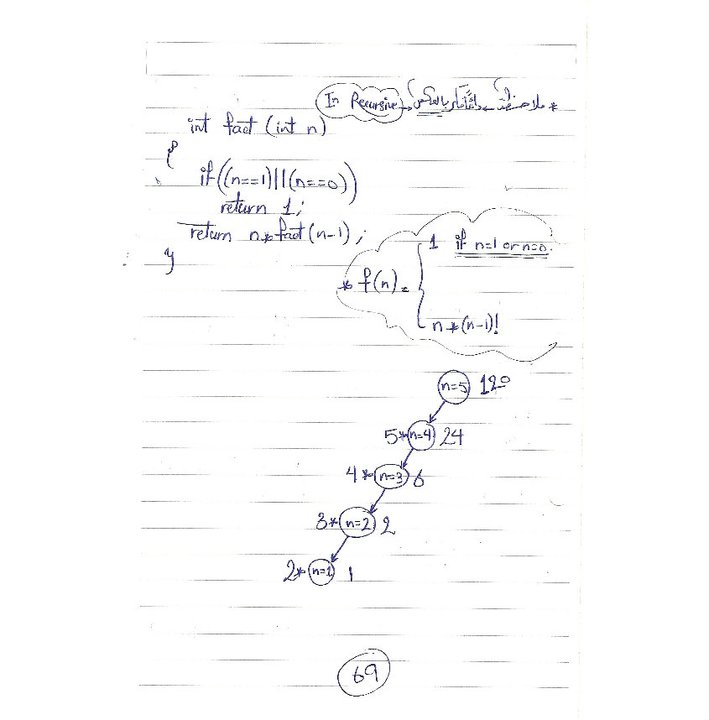 * ملاحظة دائماً بالعكس In Recursive
int fact (int n)
{
if((n==1)||(n==0))
return 1;
return n*fact(n-1);
}
* f(n) = { 1 if n=1 or n=0.
n*(n-1)!
n=5 120
5* n=4 24
4* n=3 6
3* n=2 2
2* n=1 1
69